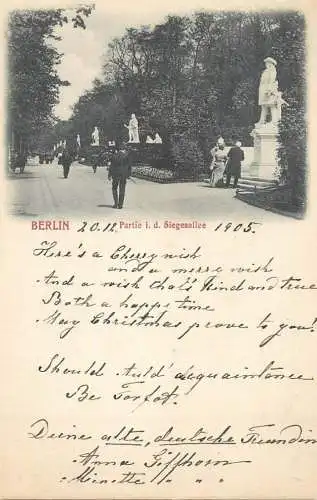 BERLIN 20.12. Partie i. d. Siegesallee 1905.
Here's a Cheery wish
and a merry wish
And a wish that's kind and true
Both a happe time
May Christmas prove to you!
Should Auld' acquaintance
Be Forgot!
Deine alte, deutsche Freundin
Anna Giffhorn
Minette " "